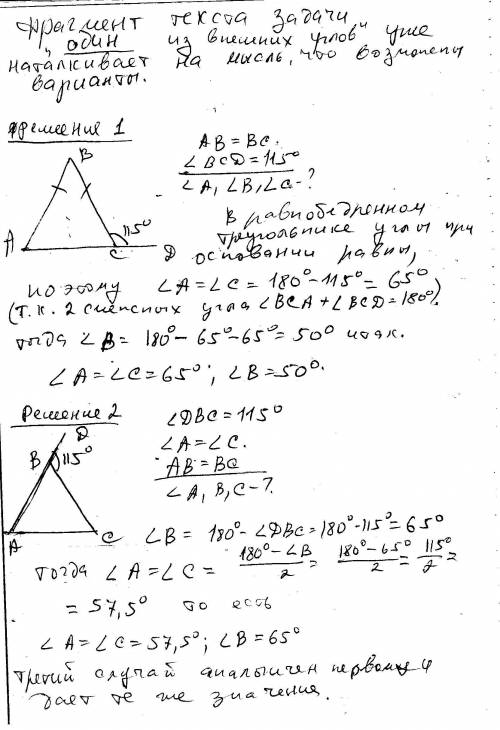 фрагмент текста задачи
„один из внешних углов" уже
наталкивает на мысль, что возможны
варианты.
Решение 1
B
AB = BC.
∠BCD = 115°
∠A, ∠B, ∠C - ?
115°
A
C
D
В равнобедренном
треугольнике углы при
основании равны,
поэтому ∠A = ∠C = 180° - 115° = 65°
(т.к. 2 смежных угла ∠BCA + ∠BCD = 180°).
тогда ∠B = 180° - 65° - 65° = 50° итак.
∠A = ∠C = 65°; ∠B = 50°.
Решение 2
D
B
115°
A
C
∠DBC = 115°
∠A = ∠C.
AB = BC
∠A, B, C - ?.
∠B = 180° - ∠DBC = 180° - 115° = 65°
тогда ∠A = ∠C = (180° - ∠B)/2 = (180° - 65°)/2 = 115°/2 =
= 57,5° то есть
∠A = ∠C = 57,5°; ∠B = 65°
третий случай аналогичен первому и
дает те же значения.